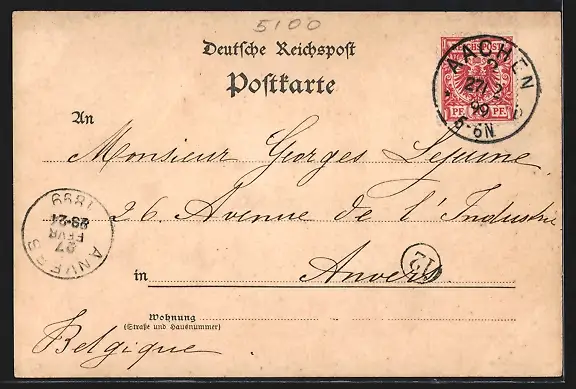 5100
Deutsche Reichspost
Postkarte
REICHSPOST
10 PF. 10 PF.
AACHEN
2
27/2
99
5-6N
An
Monsieur Georges Lejeune
26 Avenue de l'Industrie
in Anvers
12
ANVERS
27
FEVR
23-24
1899
Wohnung
(Straße und Hausnummer)
Belgique